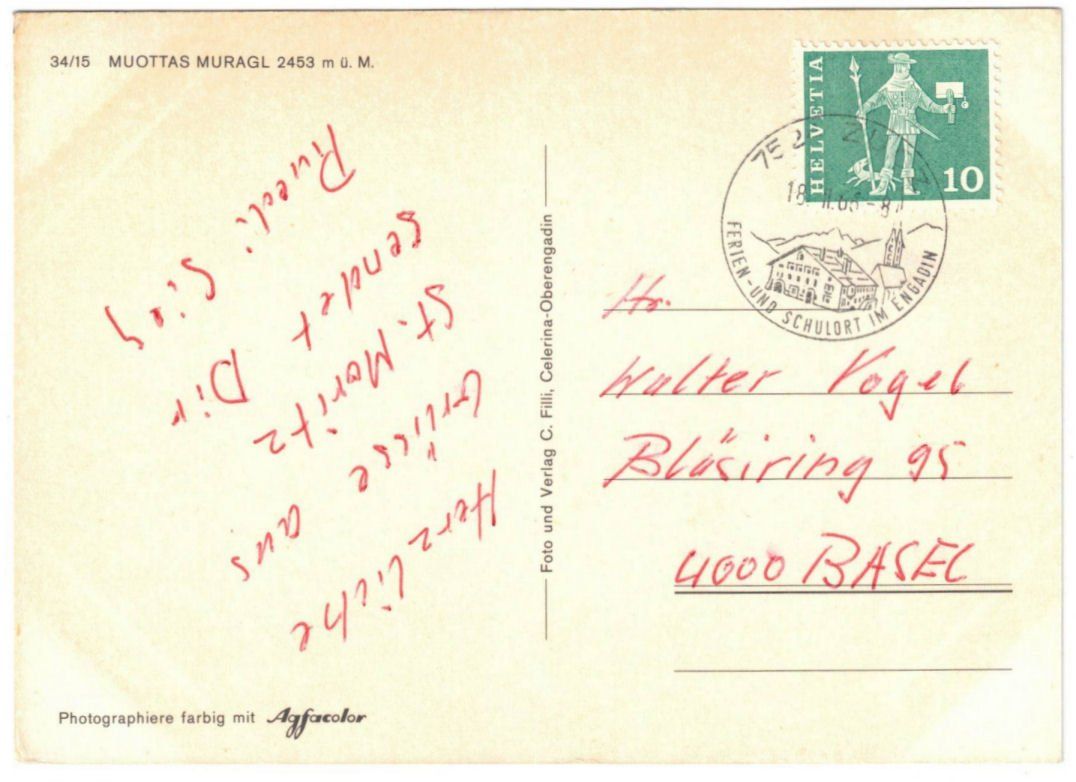 34/15 MUOTTAS MURAGL 2453 m ü. M.
HELVETIA
10
FERIEN- UND SCHULORT IM ENGADIN
Herzliche
Grüsse aus
St. Moritz
sendet Dir
Ruedi
Foto und Verlag C. Filli, Celerina-Oberengadin
Hr.
Walter Vogel
Bläsiring 95
4000 BASEL
Photographiere farbig mit Agfacolor